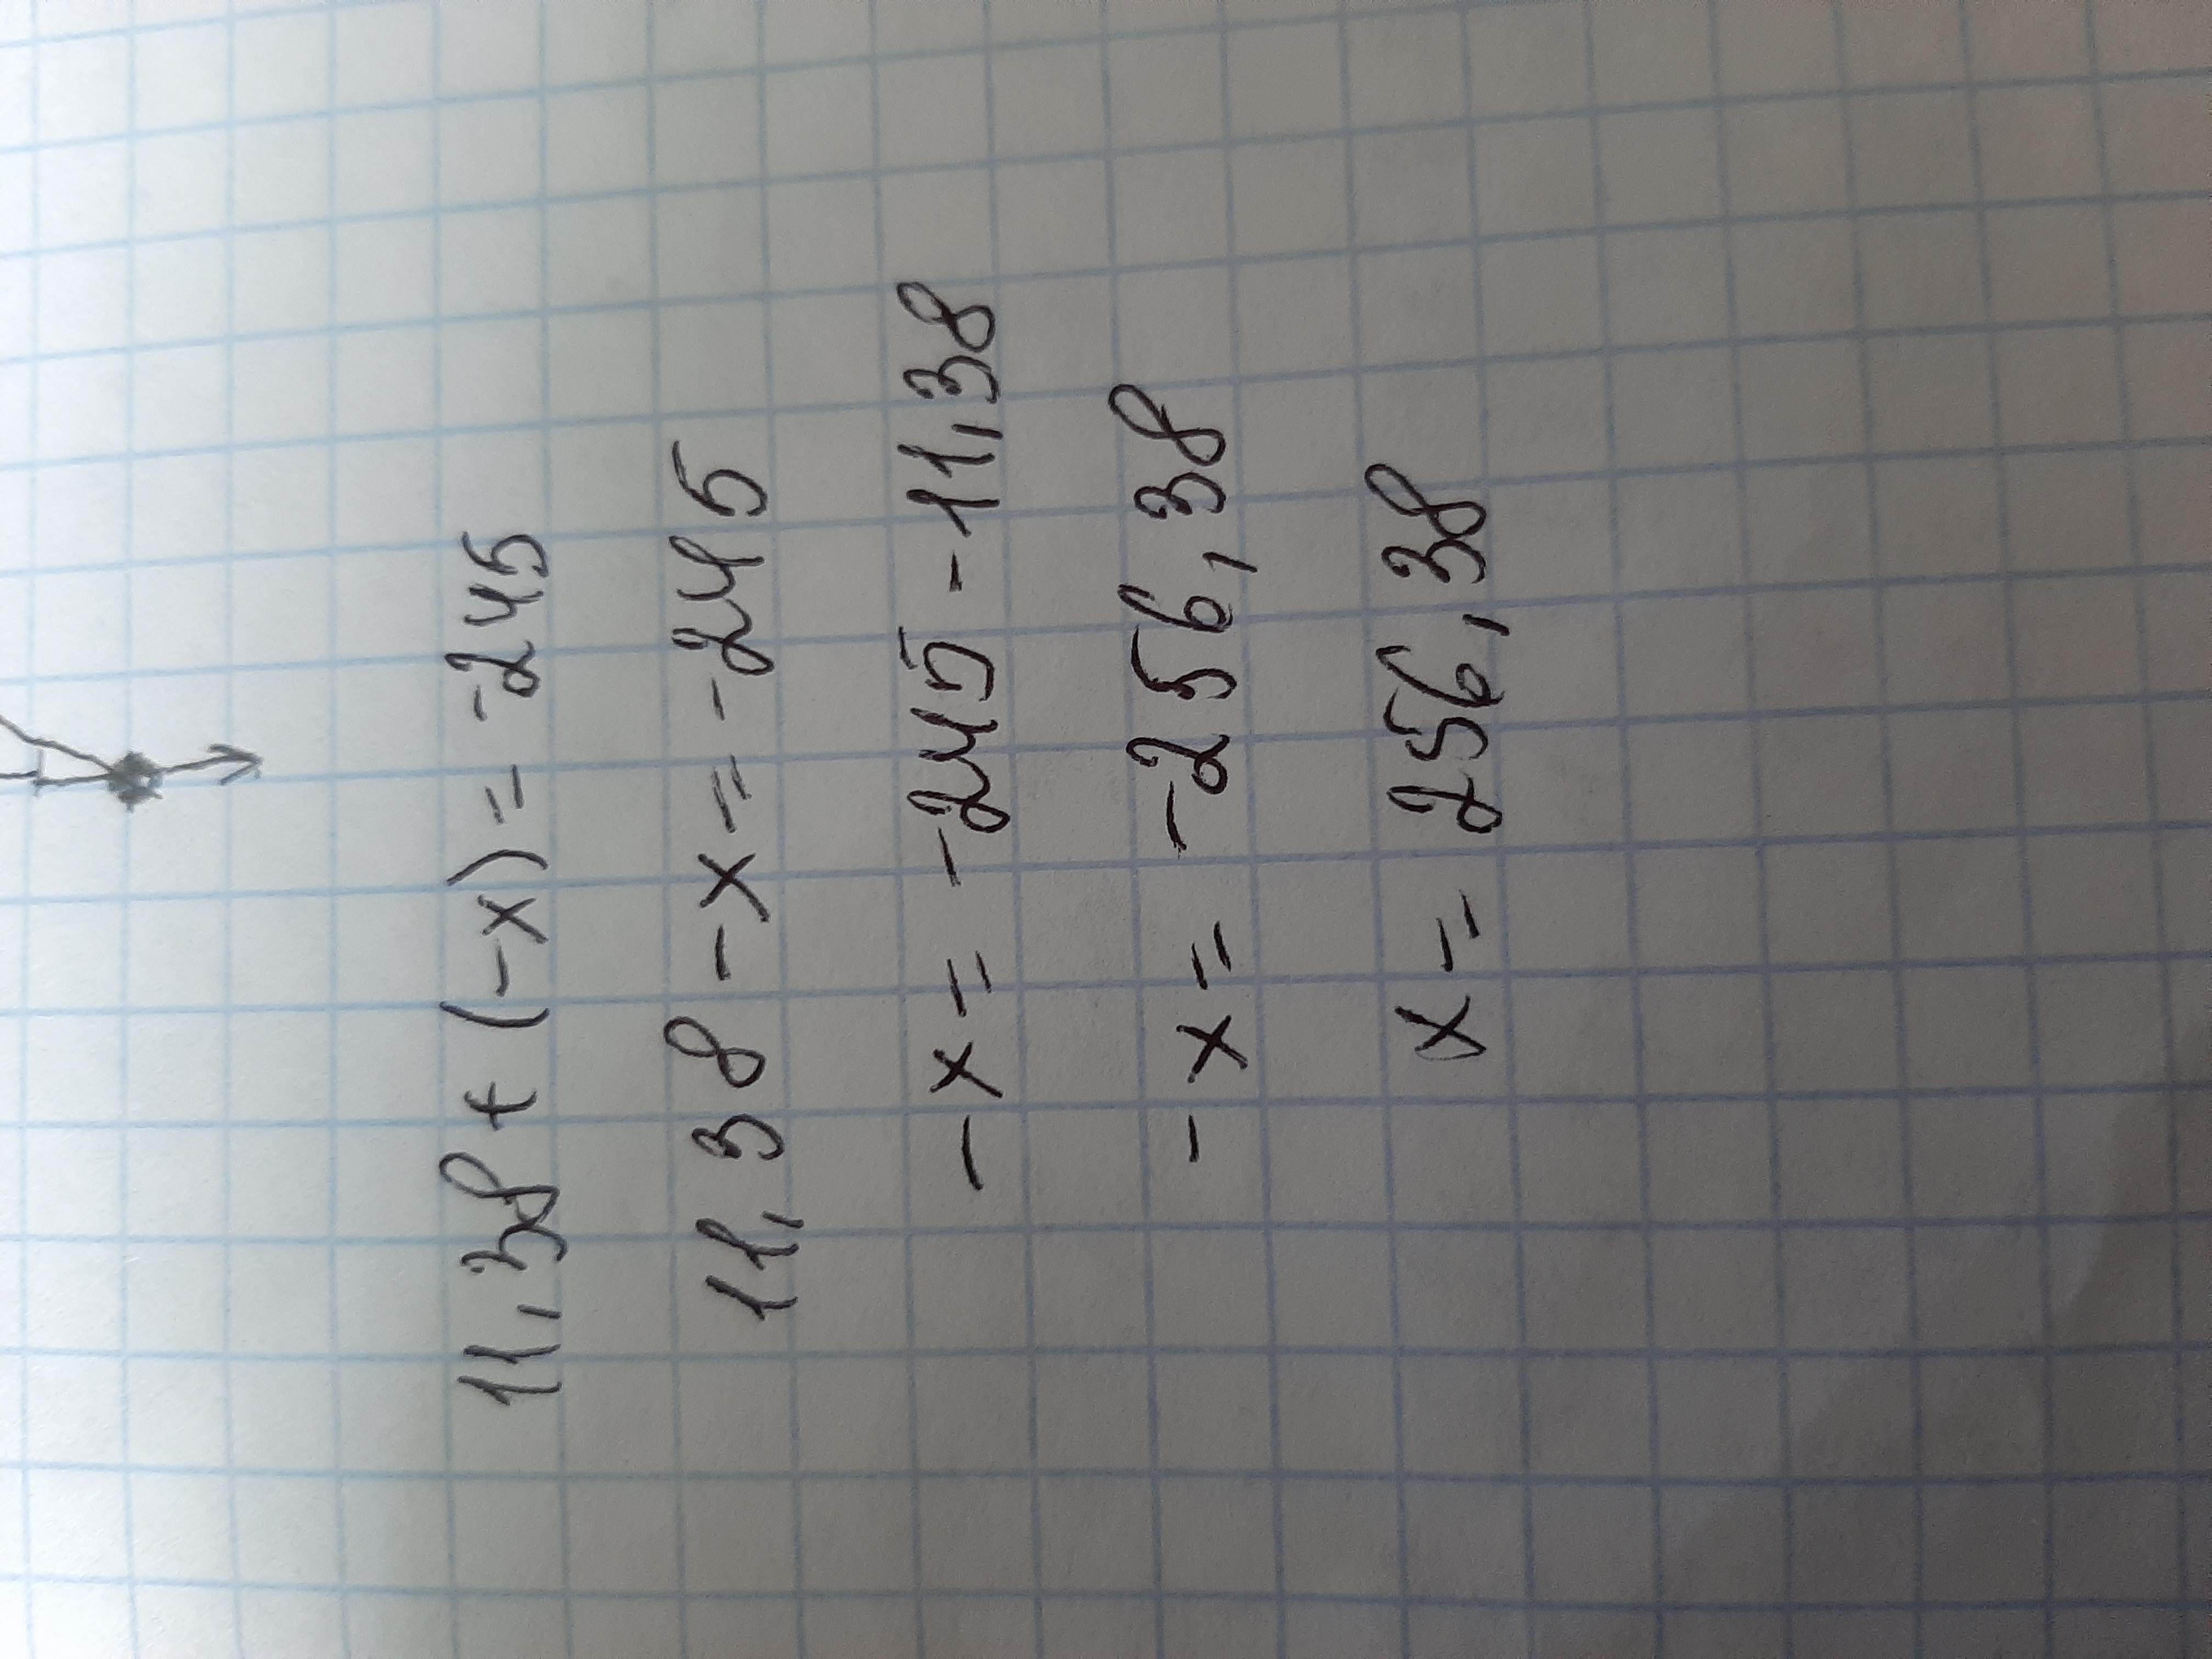 11,38 + (-x) = -245
11,38 - x = -245
-x = -245 - 11,38
-x = -256,38
x = 256,38